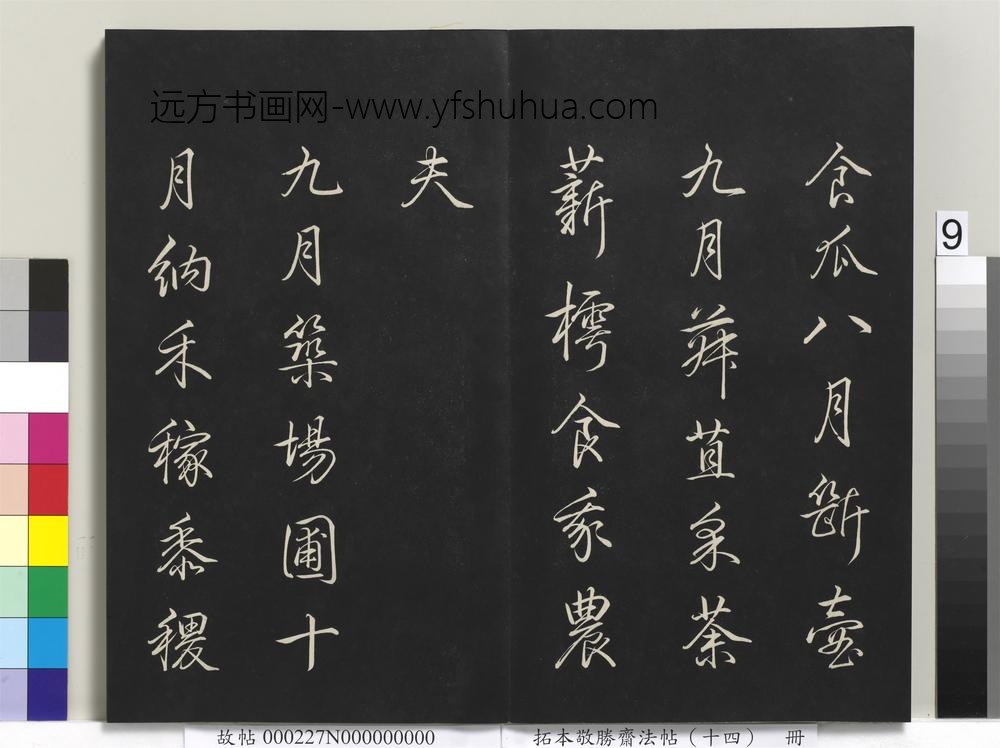 远方书画网-www.yfshuhua.com
食瓜八月斷壺
九月菽苴采荼
薪樗食我農
夫
九月築場圃十
月納禾稼黍稷
9
故帖 000227N000000000
拓本敬勝齋法帖（十四） 冊